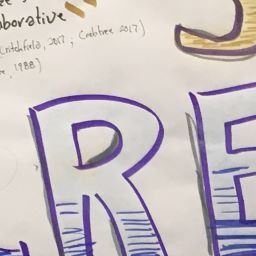 laborative
(Critchfield, 2017; Crabtree 2017)
, 1988)
RE